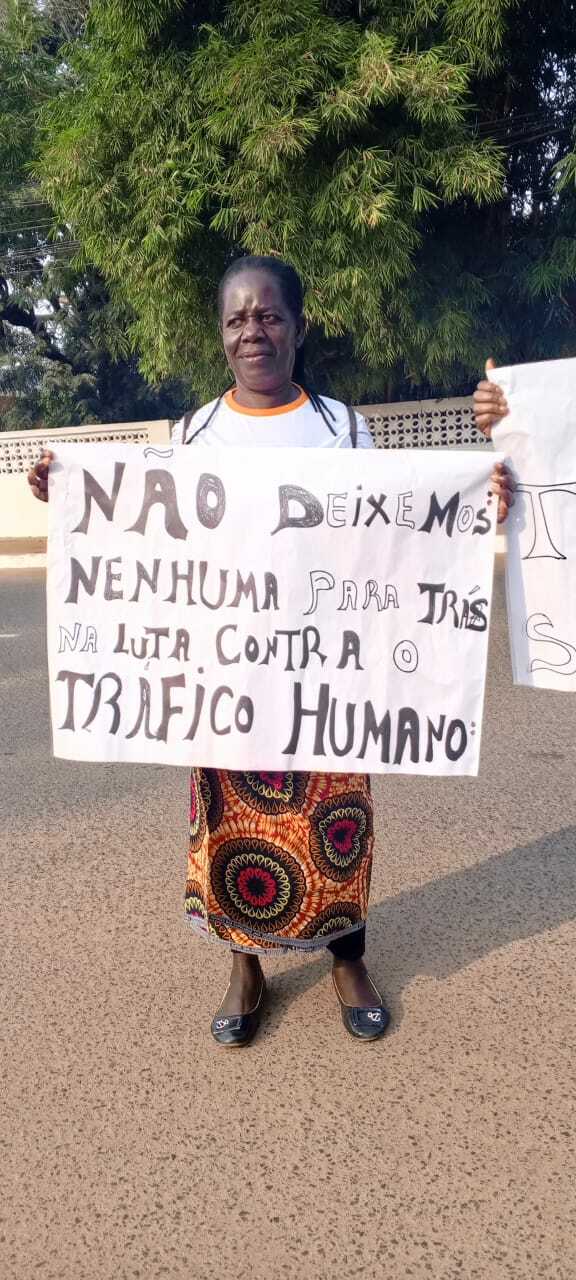 NÃO DEIXEMOS
NENHUMA PARA TRÁS
NA LUTA CONTRA O
TRÁFICO HUMANO:
T
S